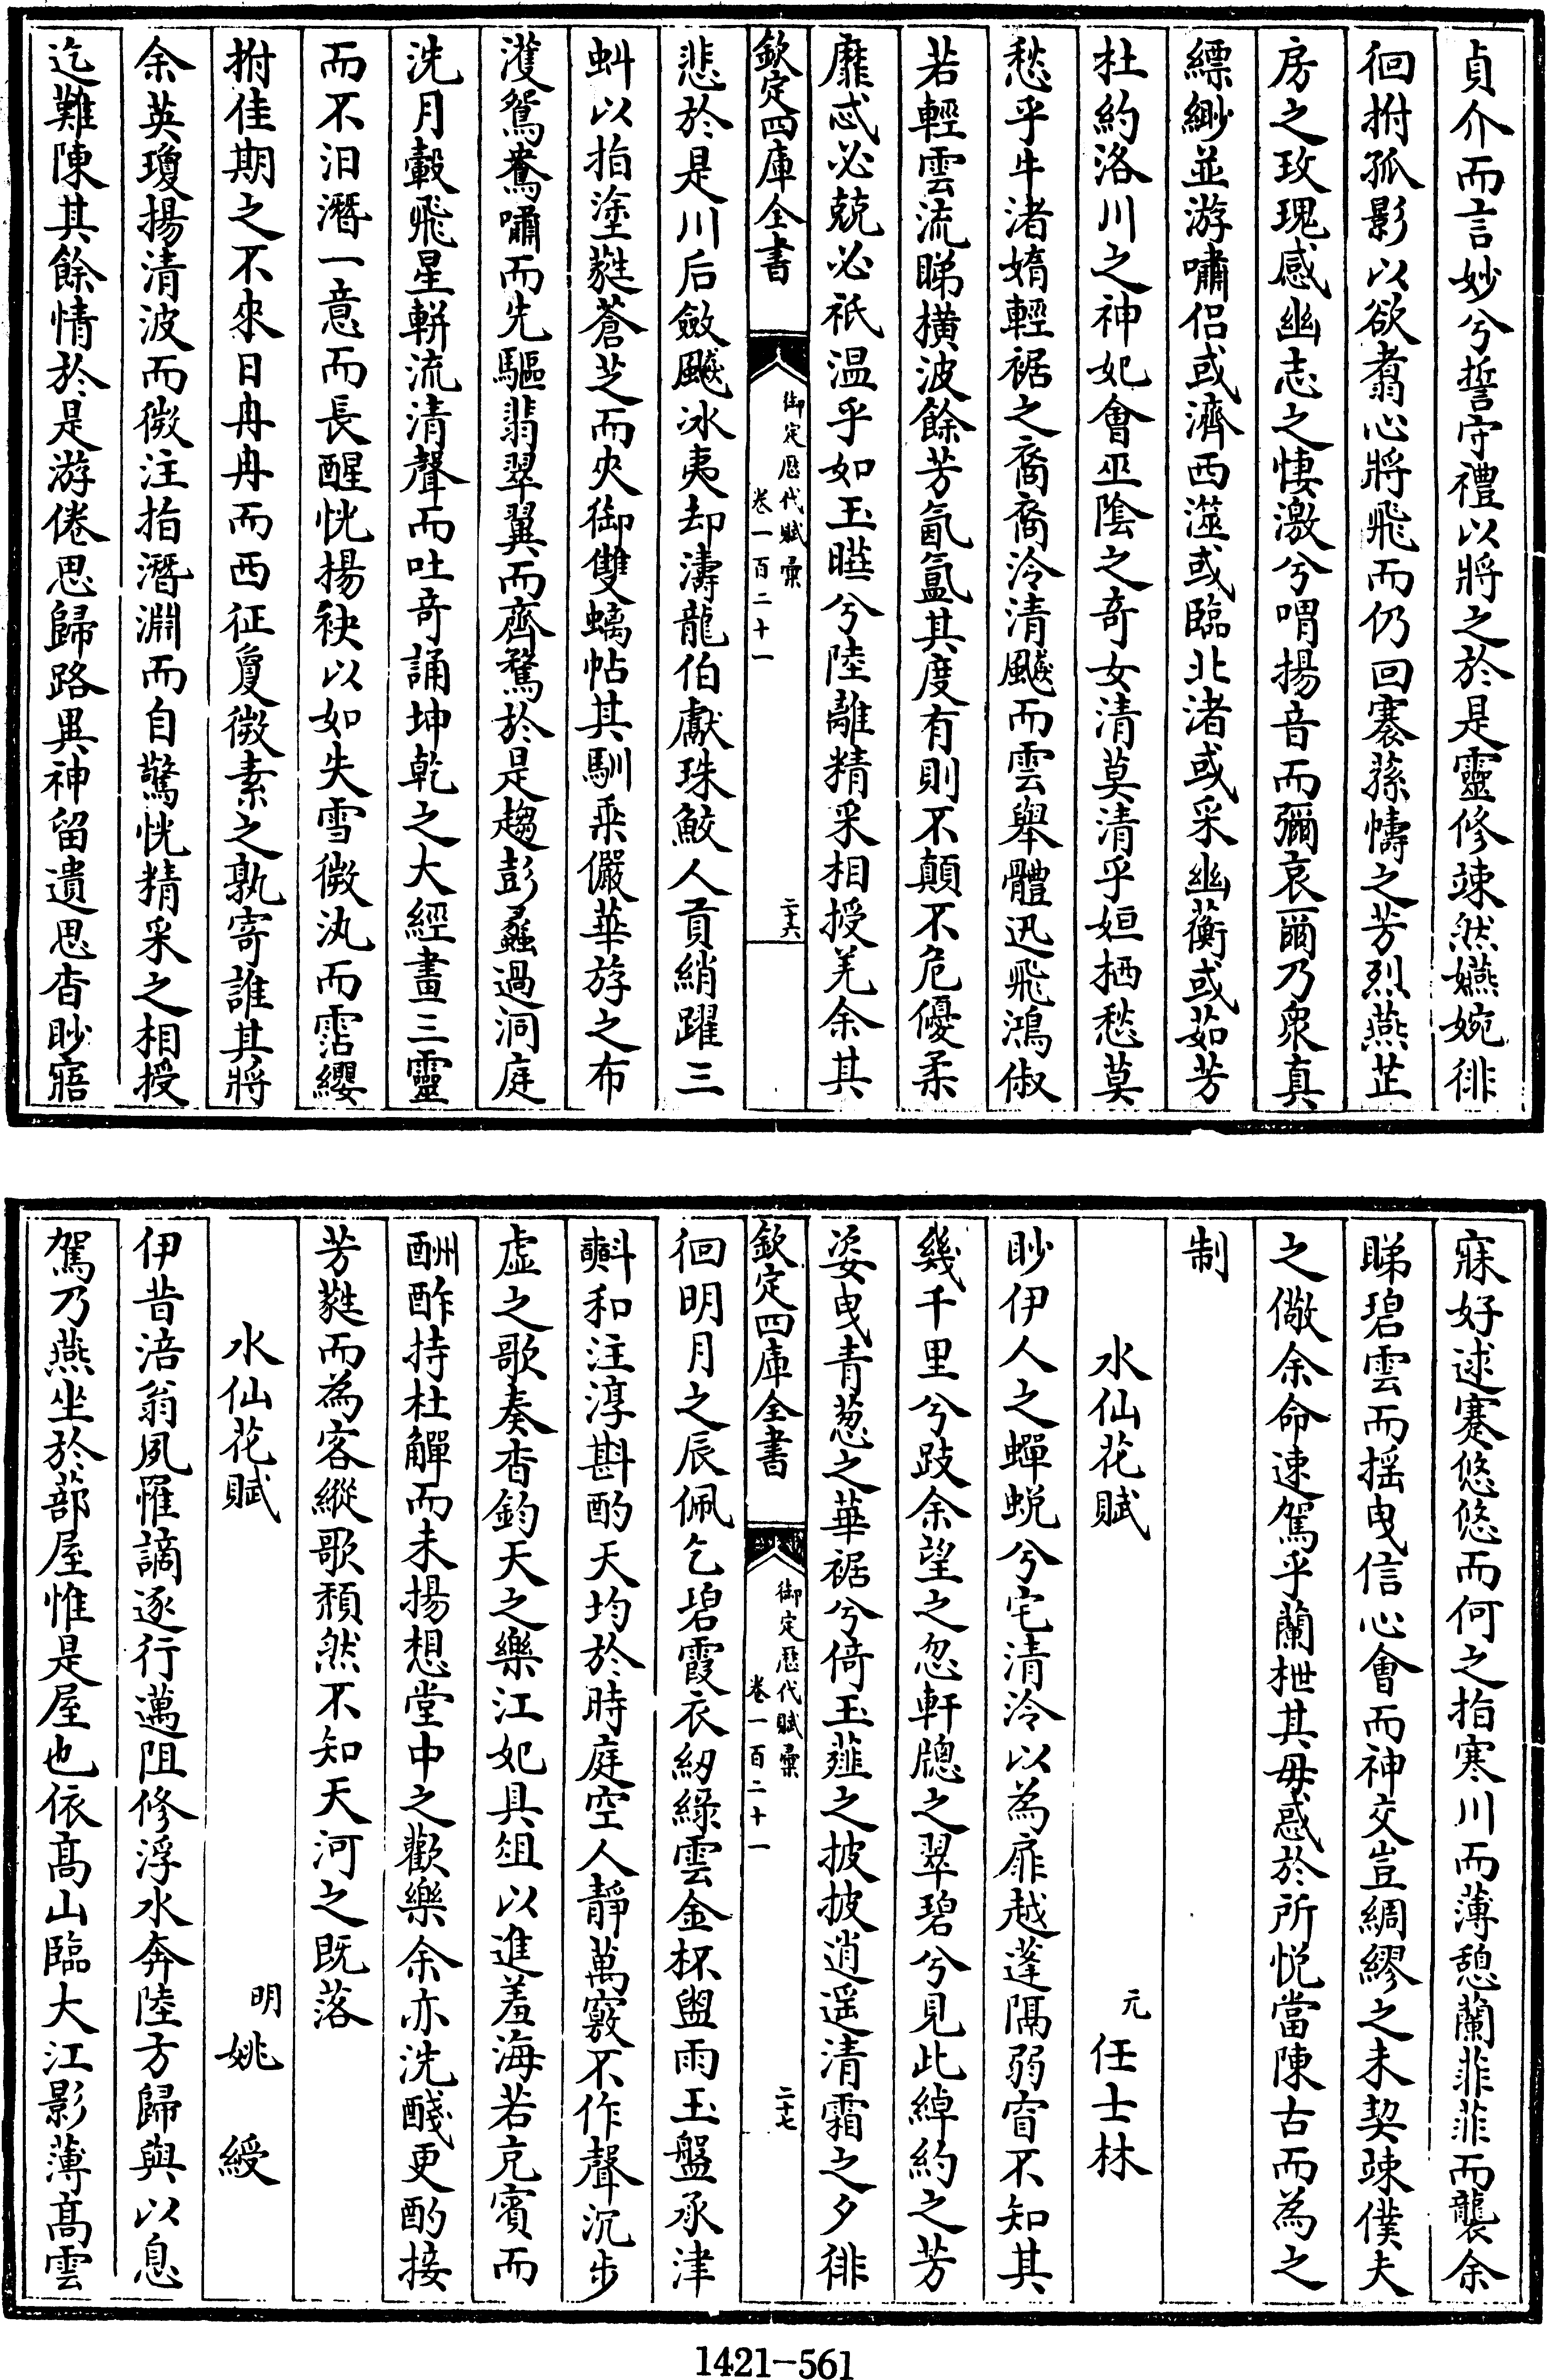 貞介而言妙兮誓守禮以將之於是靈修竦然嬿婉徘
徊拊孤影以欲翥心將飛而仍回褰蓀幬之芳烈燕芷
房之玫瑰感幽志之悽激兮喟揚音而彌哀爾乃衆真
縹緲並游嘯侶或濟西澨或臨北渚或采幽蘅或茹芳
杜約洛川之神妃會巫陰之奇女清莫清乎姮栖愁莫
愁乎牛渚媠輕裾之裔裔泠清飈而雲舉體迅飛鴻俶
若輕雲流睇橫波餘芳氤氳其度有則不顛不危優柔
靡忒必兢必祗温乎如玉曄兮陸離精采相授羌余其
欽定四庫全書
御定歷代賦彙
卷一百二十一
二十六
悲於是川后斂飈冰夷却濤龍伯獻珠鮫人貢綃躍三
蚪以拍塗蕤蒼芝而夾御雙螭帖其馴乘儼華斿之布
濩鴛鴦嘯而先驅翡翠翼而齊騖於是趨彭蠡過洞庭
洗月轂飛星軿流清聲而吐奇誦坤乾之大經畫三靈
而不汨潛一意而長醒恍揚袂以如失雪微汍而霑纓
拊佳期之不來日冉冉而西征夐微素之孰寄誰其將
余英瓊揚清波而微注指潛淵而自驚恍精采之相授
迄難陳其餘情於是游倦思歸路異神留遺思杳眇寤
寐好逑蹇悠悠而何之指寒川而薄憩蘭菲菲而襲余
睇碧雲而摇曳信心會而神交豈綢繆之未契竦僕夫
之儆余命速駕乎蘭枻其毋惑於所悦當陳古而為之
制
水仙花賦
元 任士林
眇伊人之蟬蜕兮宅清泠以為扉越蓬隔弱窅不知其
幾千里兮跂余望之忽軒牕之翠碧兮見此綽約之芳
姿曳青葱之華裾兮倚玉薤之披披逍遥清霜之夕徘
徊明月之辰佩乞碧霞衣紉緑雲金杯盥雨玉盤承津
㪺和注淳斟酌天均於時庭空人靜萬竅不作聲沉步
虚之歌奏杳鈞天之樂江妃具俎以進羞海若充賓而
酬酢持杜觶而未揚想堂中之歡樂余亦洗醆更酌接
芳蕤而為客縱歌頹然不知天河之既落
水仙花賦
明 姚 綬
伊昔涪翁夙罹謫逐行邁阻修浮水奔陸方歸與以息
駕乃燕坐於蔀屋惟是屋也依髙山臨大江影薄髙雲
1421-561